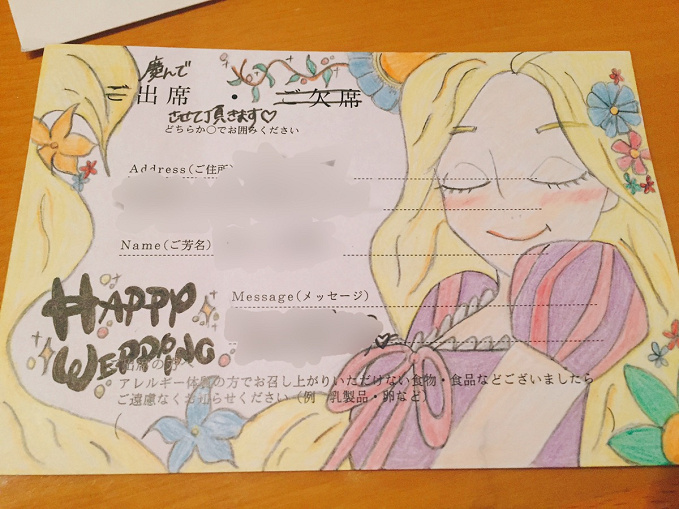 慶んで
ご出席 ・ ご欠席
させて頂きます♡
どちらか○でお囲みください
Address(ご住所)
Name(ご芳名)
Message(メッセージ)
HAPPY
WEDDING
アレルギー体質の方でお召し上がりいただけない食物・食品などございましたら
ご遠慮なくお知らせください(例 乳製品・卵など)